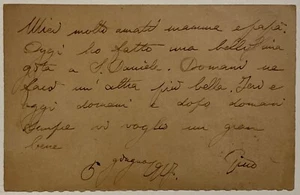 Miei molto amati mamma e papà.
Oggi ho fatto una bellissima
gita a S. Daniele. Domani ne
farò un'altra più bella. Ieri e
oggi domani e dopo domani
sempre vi voglio un gran
bene
5 giugno 1917. Pino